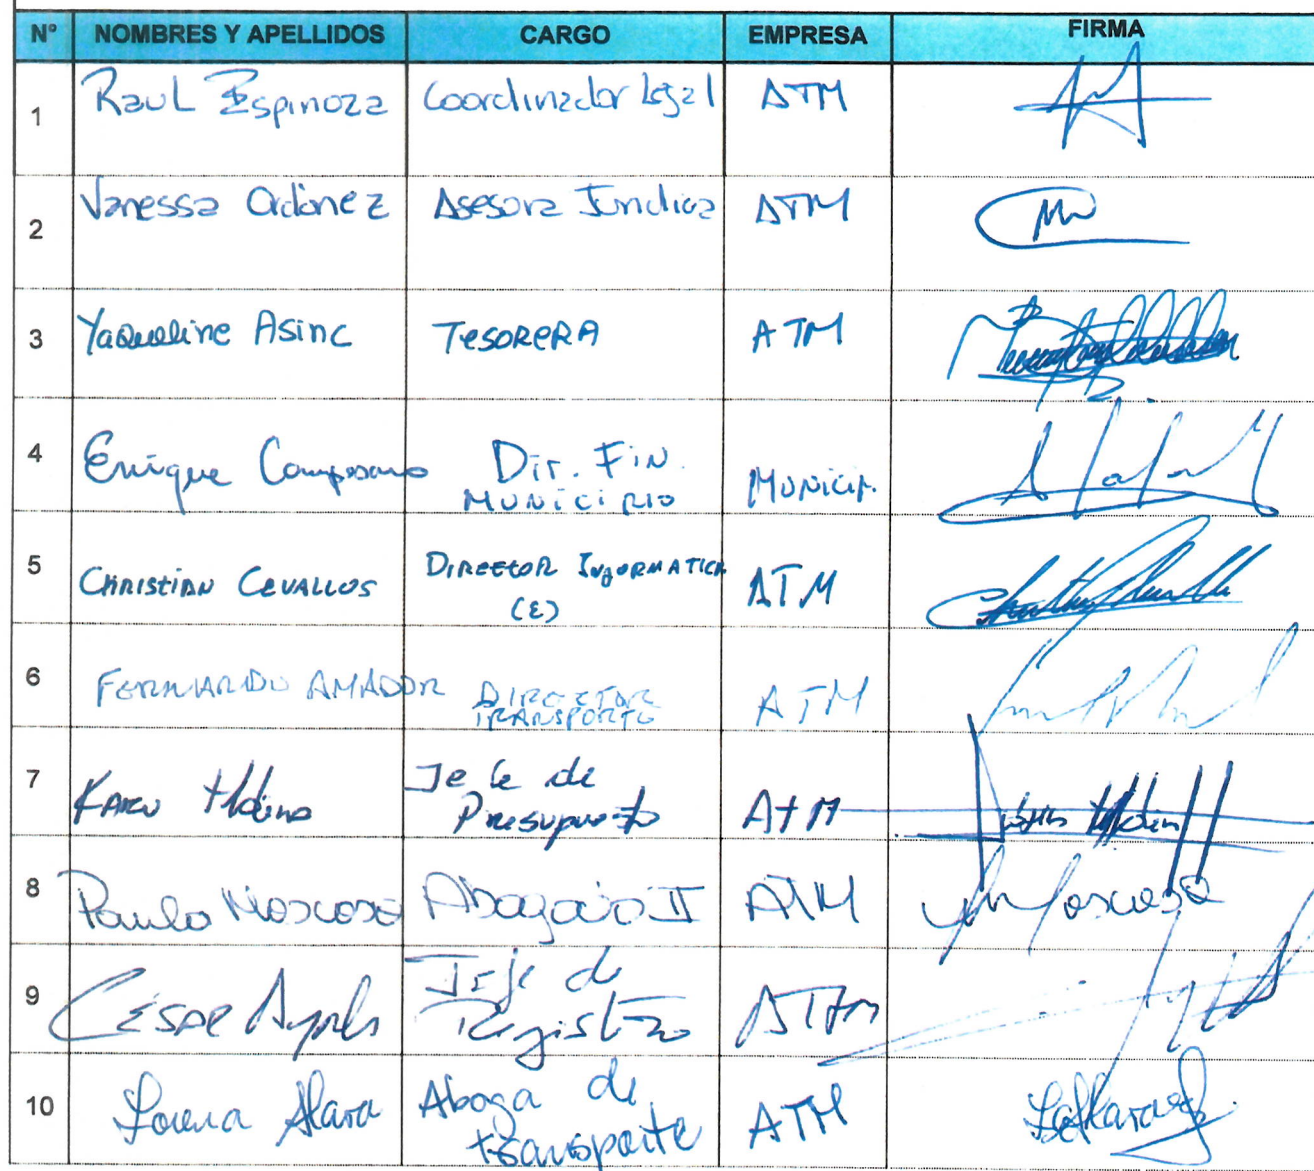 Nº NOMBRES Y APELLIDOS CARGO EMPRESA FIRMA
1 Raul Espinoza Coordinador Legal ATM
2 Vanessa Ordonez Asesora Juridica ATM
3 Yaqueline Asinc TesoReRA ATM
4 Enrique Camposano Dir. Fin. MUNICIPIO MUNICIP.
5 CHRISTIAN CEVALLOS DIRECTOR INFORMATICA (E) ATM
6 FERNANDO AMADOR DIRECTOR TRANSPORTE ATM
7 Karen Jefe de Presupuesto ATM
8 Paulo Moscoso Abogado II ATM Moscoso
9 CESAR Jefe de Registro ATM
10 Lorena Alava Aboga de transporte ATM